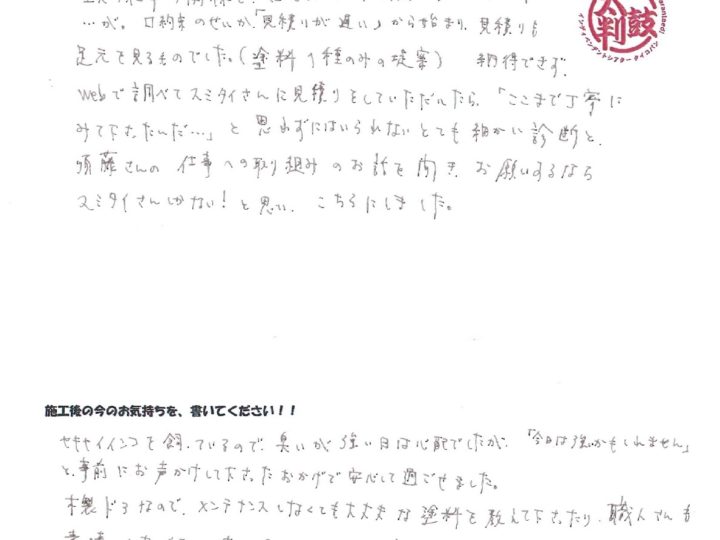 …が。口約束のせいか、「見積りが遅い」から始まり、見積りも
足元を見るものでした。(塗料1種のみの提案) 納得できず、
Webで調べてスミタイさんに見積りをしていただいたら、「ここまで丁寧に
みて下さったんだ…」と思わずにはいられないとても細かい診断と、
須藤さんの仕事への取り組みのお話を聞き、お願いするなら
スミタイさんしかない!と思い、こちらにしました。
太鼓判
インディペンデントシアター タイコバン
施工後の今のお気持ちを、書いてください!!
セキセイインコを飼っているので、臭いが強い日は心配でしたが、「今日は強いかもしれません」
と、事前にお声かけして下さったおかげで安心して過ごせました。
木製ドアなので、メンテナンスしなくても大丈夫な塗料を教えて下さったり、職人さんも